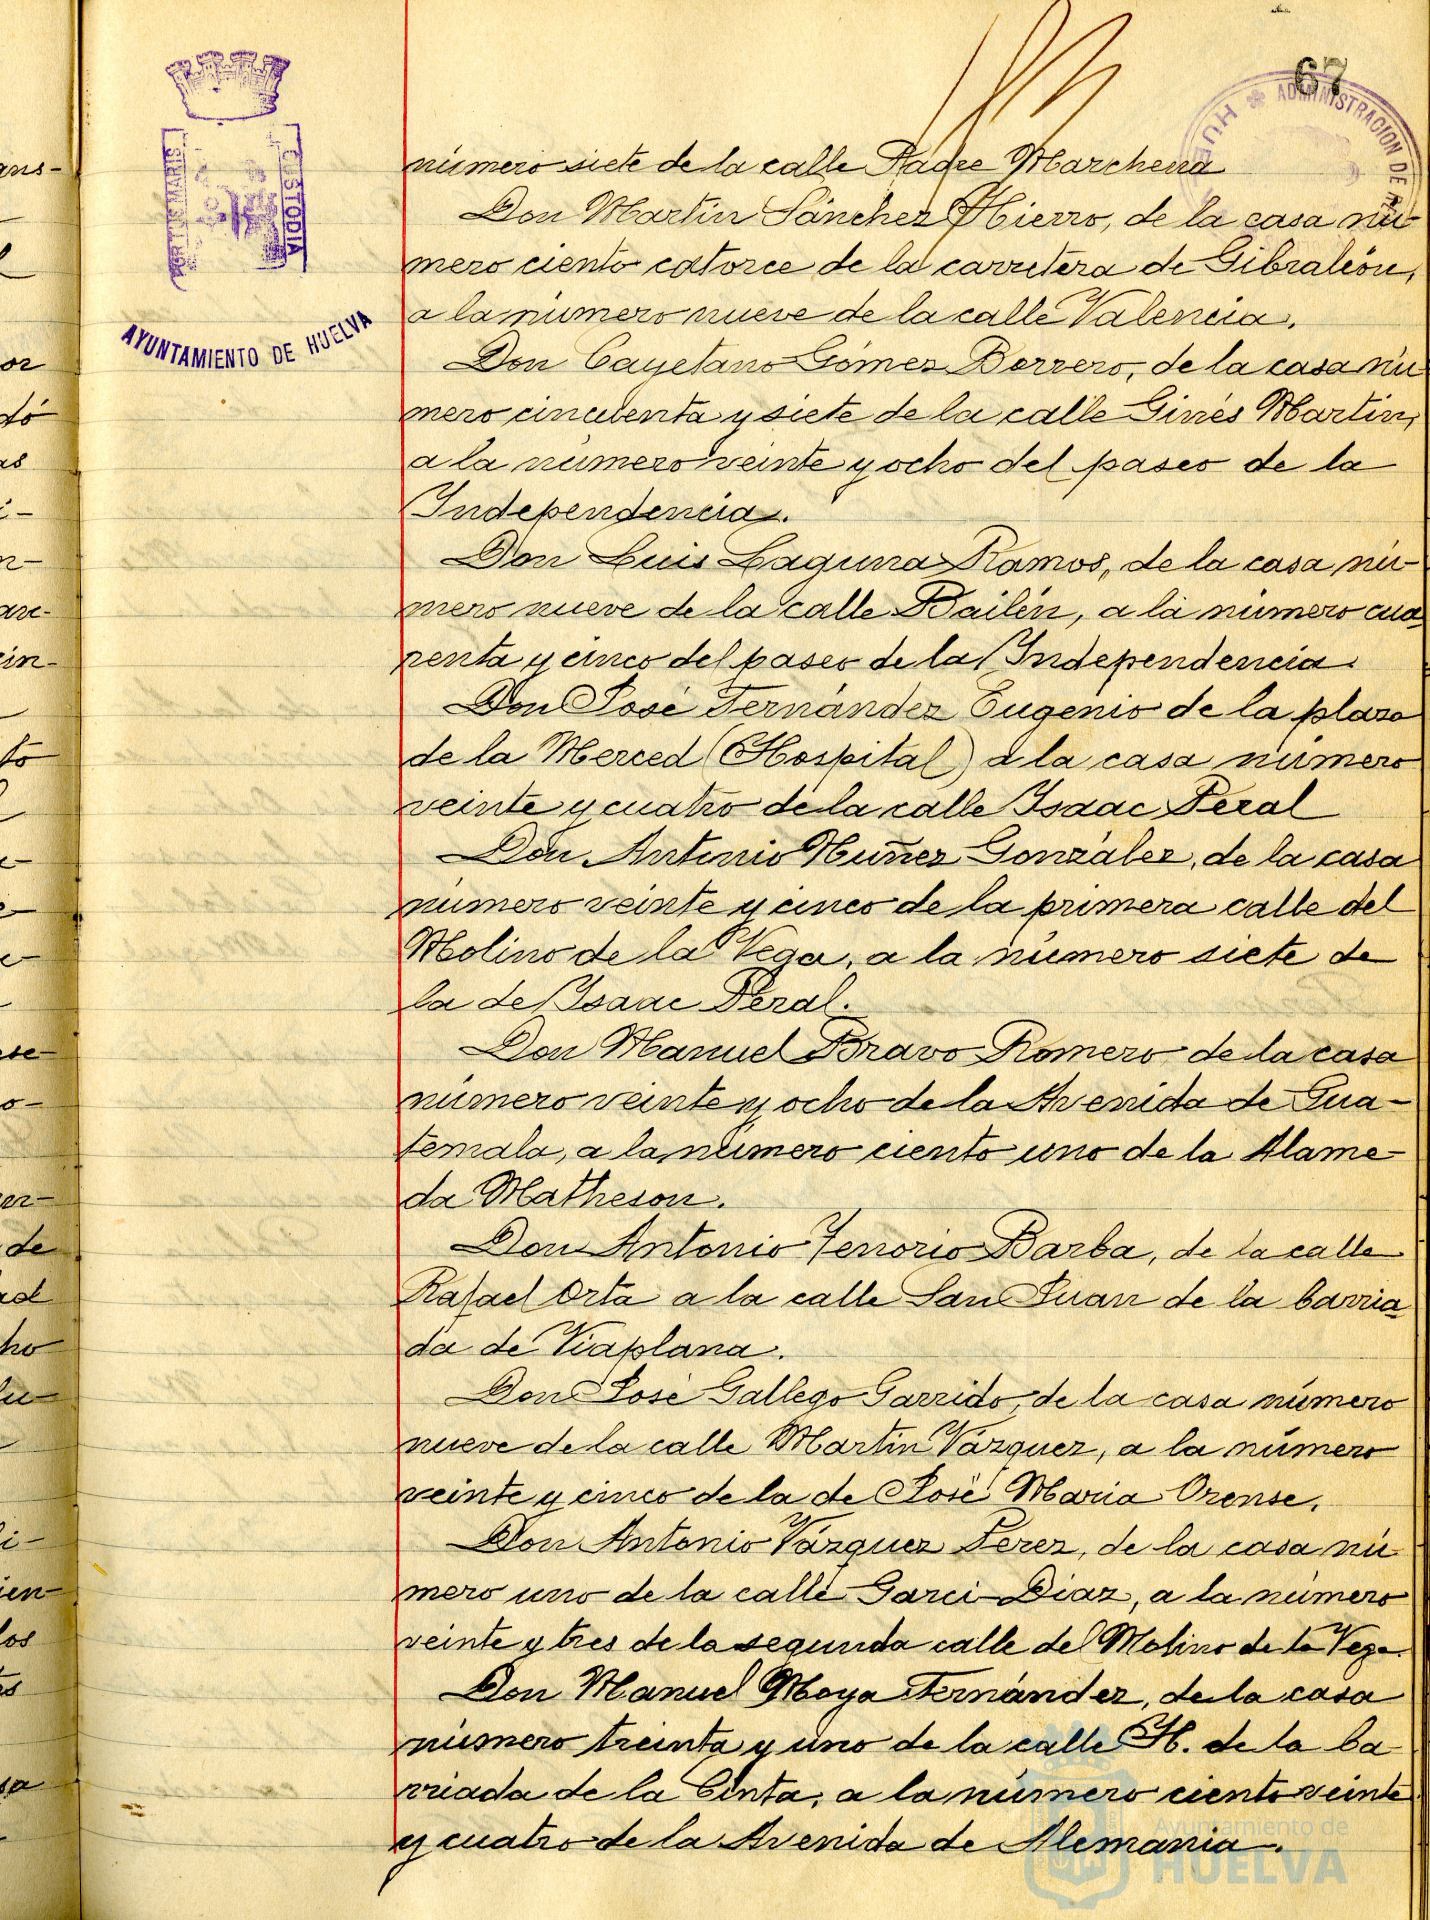 67
ADMINISTRACION DE
HUEL
PORTUS MARIS
CUSTODIA
AYUNTAMIENTO DE HUELVA
número siete de la calle Padre Marchena
Don Martín Sánchez Hierro, de la casa nú-
mero ciento catorce de la carretera de Gibraleón,
a la número nueve de la calle Valencia.
Don Cayetano Gómez Borrero, de la casa nú
mero cincuenta y siete de la calle Ginés Martín,
a la número veinte y ocho del paseo de la
Independencia.
Don Luis Laguna Ramos, de la casa nú-
mero nueve de la calle Bailén, a la número cua
renta y cinco del paseo de la Independencia.
Don José Fernández Eugenio de la plaza
de la Merced (Hospital) a la casa número
veinte y cuatro de la calle Isaac Peral
Don Antonio Núñez González, de la casa
número veinte y cinco de la primera calle del
Molino de la Vega, a la número siete de
la de Isaac Peral.
Don Manuel Bravo Romero de la casa
número veinte y ocho de la Avenida de Gua-
temala, a la número ciento uno de la Alame-
da Matheson.
Don Antonio Tenorio Barba, de la calle
Rafael Orta a la calle San Juan de la barria
da de Viaplana.
Don José Gallego Garrido, de la casa número
nueve de la calle Martín Vázquez, a la número
veinte y cinco de la de José María Orense.
Don Antonio Vázquez Perez, de la casa nú
mero uno de la calle Garci-Diaz, a la número
veinte y tres de la segunda calle del Molino de la Vega.
Don Manuel Moya Fernández, de la casa
número treinta y uno de la calle H. de la ba
rriada de la Cinta, a la número ciento veinte
y cuatro de la Avenida de Alemania.
Ayuntamiento de
HUELVA